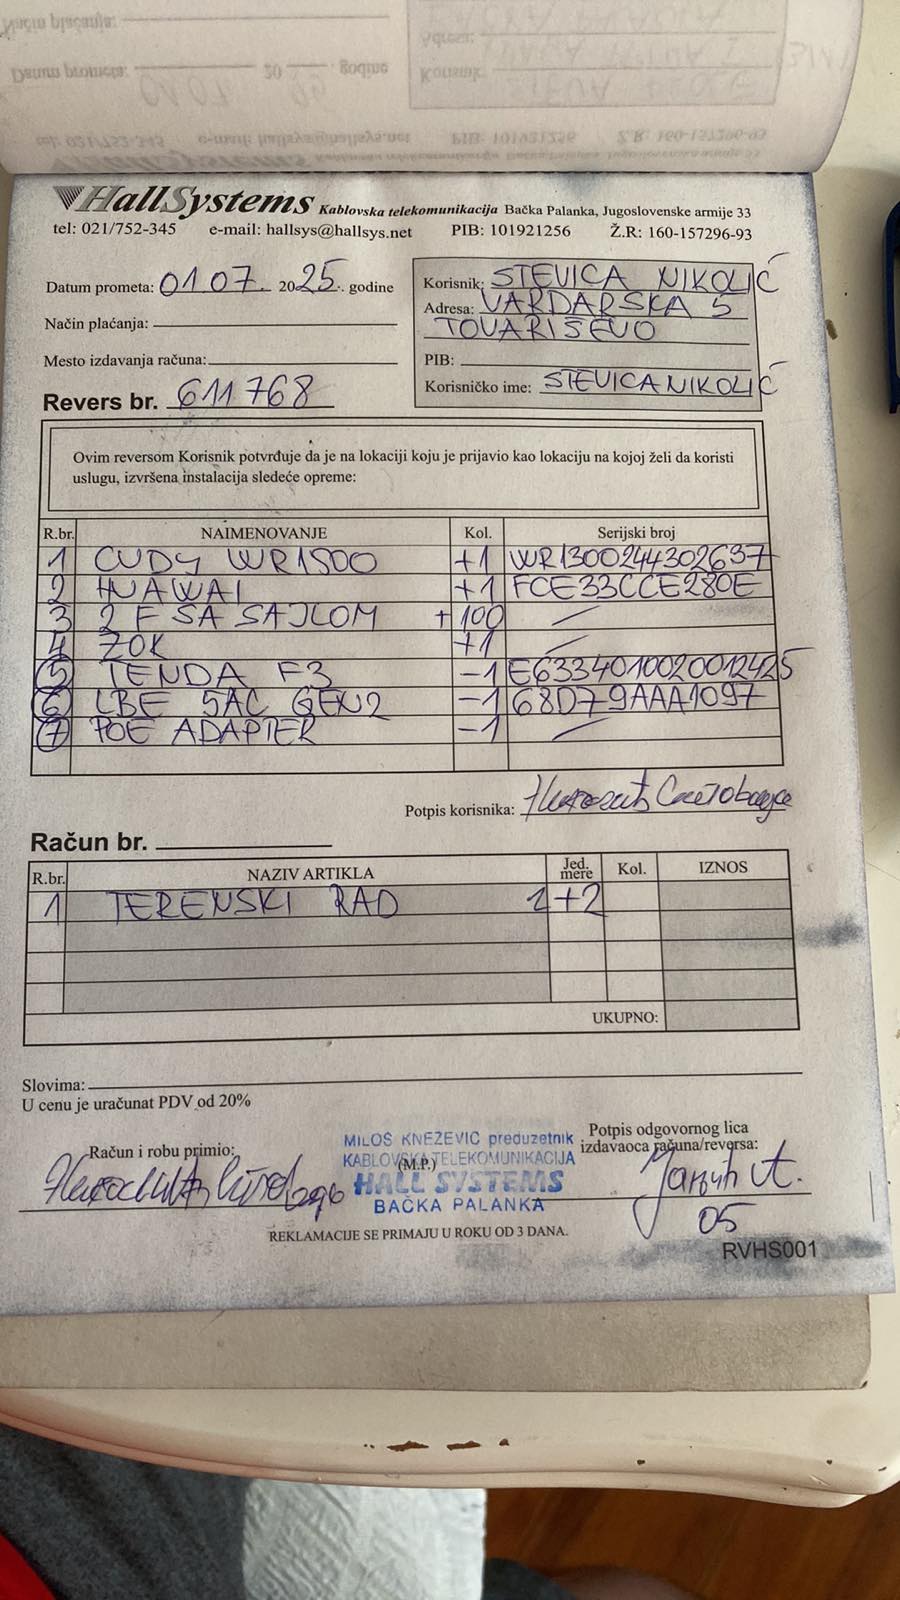 HallSystems Kablovska telekomunikacija Bačka Palanka, Jugoslovenske armije 33
tel: 021/752-345 e-mail: hallsys@hallsys.net PIB: 101921256 Ž.R: 160-157296-93
Datum prometa: 01.07. 2025. godine
Način plaćanja:
Mesto izdavanja računa:
Revers br. 611768
Korisnik: STEVICA NIKOLIĆ
Adresa: VARDARSKA 5
TOVARIŠEVO
PIB:
Korisničko ime: STEVICANIKOLIĆ
Ovim reversom Korisnik potvrđuje da je na lokaciji koju je prijavio kao lokaciju na kojoj želi da koristi
uslugu, izvršena instalacija sledeće opreme:
R.br. NAIMENOVANJE Kol. Serijski broj
1 CUDY WR1500 +1 WR1300244302637
2 HUAWAI +1 FCE33CCE280E
3 2 F SA SAJLOM +100 /
4 ZOK +1 /
5 TENDA F3 -1 E6334010020012425
6 LBE 5AC GEN2 -1 68D79AAA1097
7 POE ADAPTER -1 /
Potpis korisnika:
Račun br.
R.br. NAZIV ARTIKLA Jed. mere Kol. IZNOS
1 TERENSKI RAD 1+2
UKUPNO:
Slovima:
U cenu je uračunat PDV od 20%
Račun i robu primio:
MILOŠ KNEŽEVIĆ preduzetnik
KABLOVSKA TELEKOMUNIKACIJA
(M.P.)
HALL SYSTEMS
BAČKA PALANKA
Potpis odgovornog lica
izdavaoca računa/reversa:
05
REKLAMACIJE SE PRIMAJU U ROKU OD 3 DANA.
RVHS001